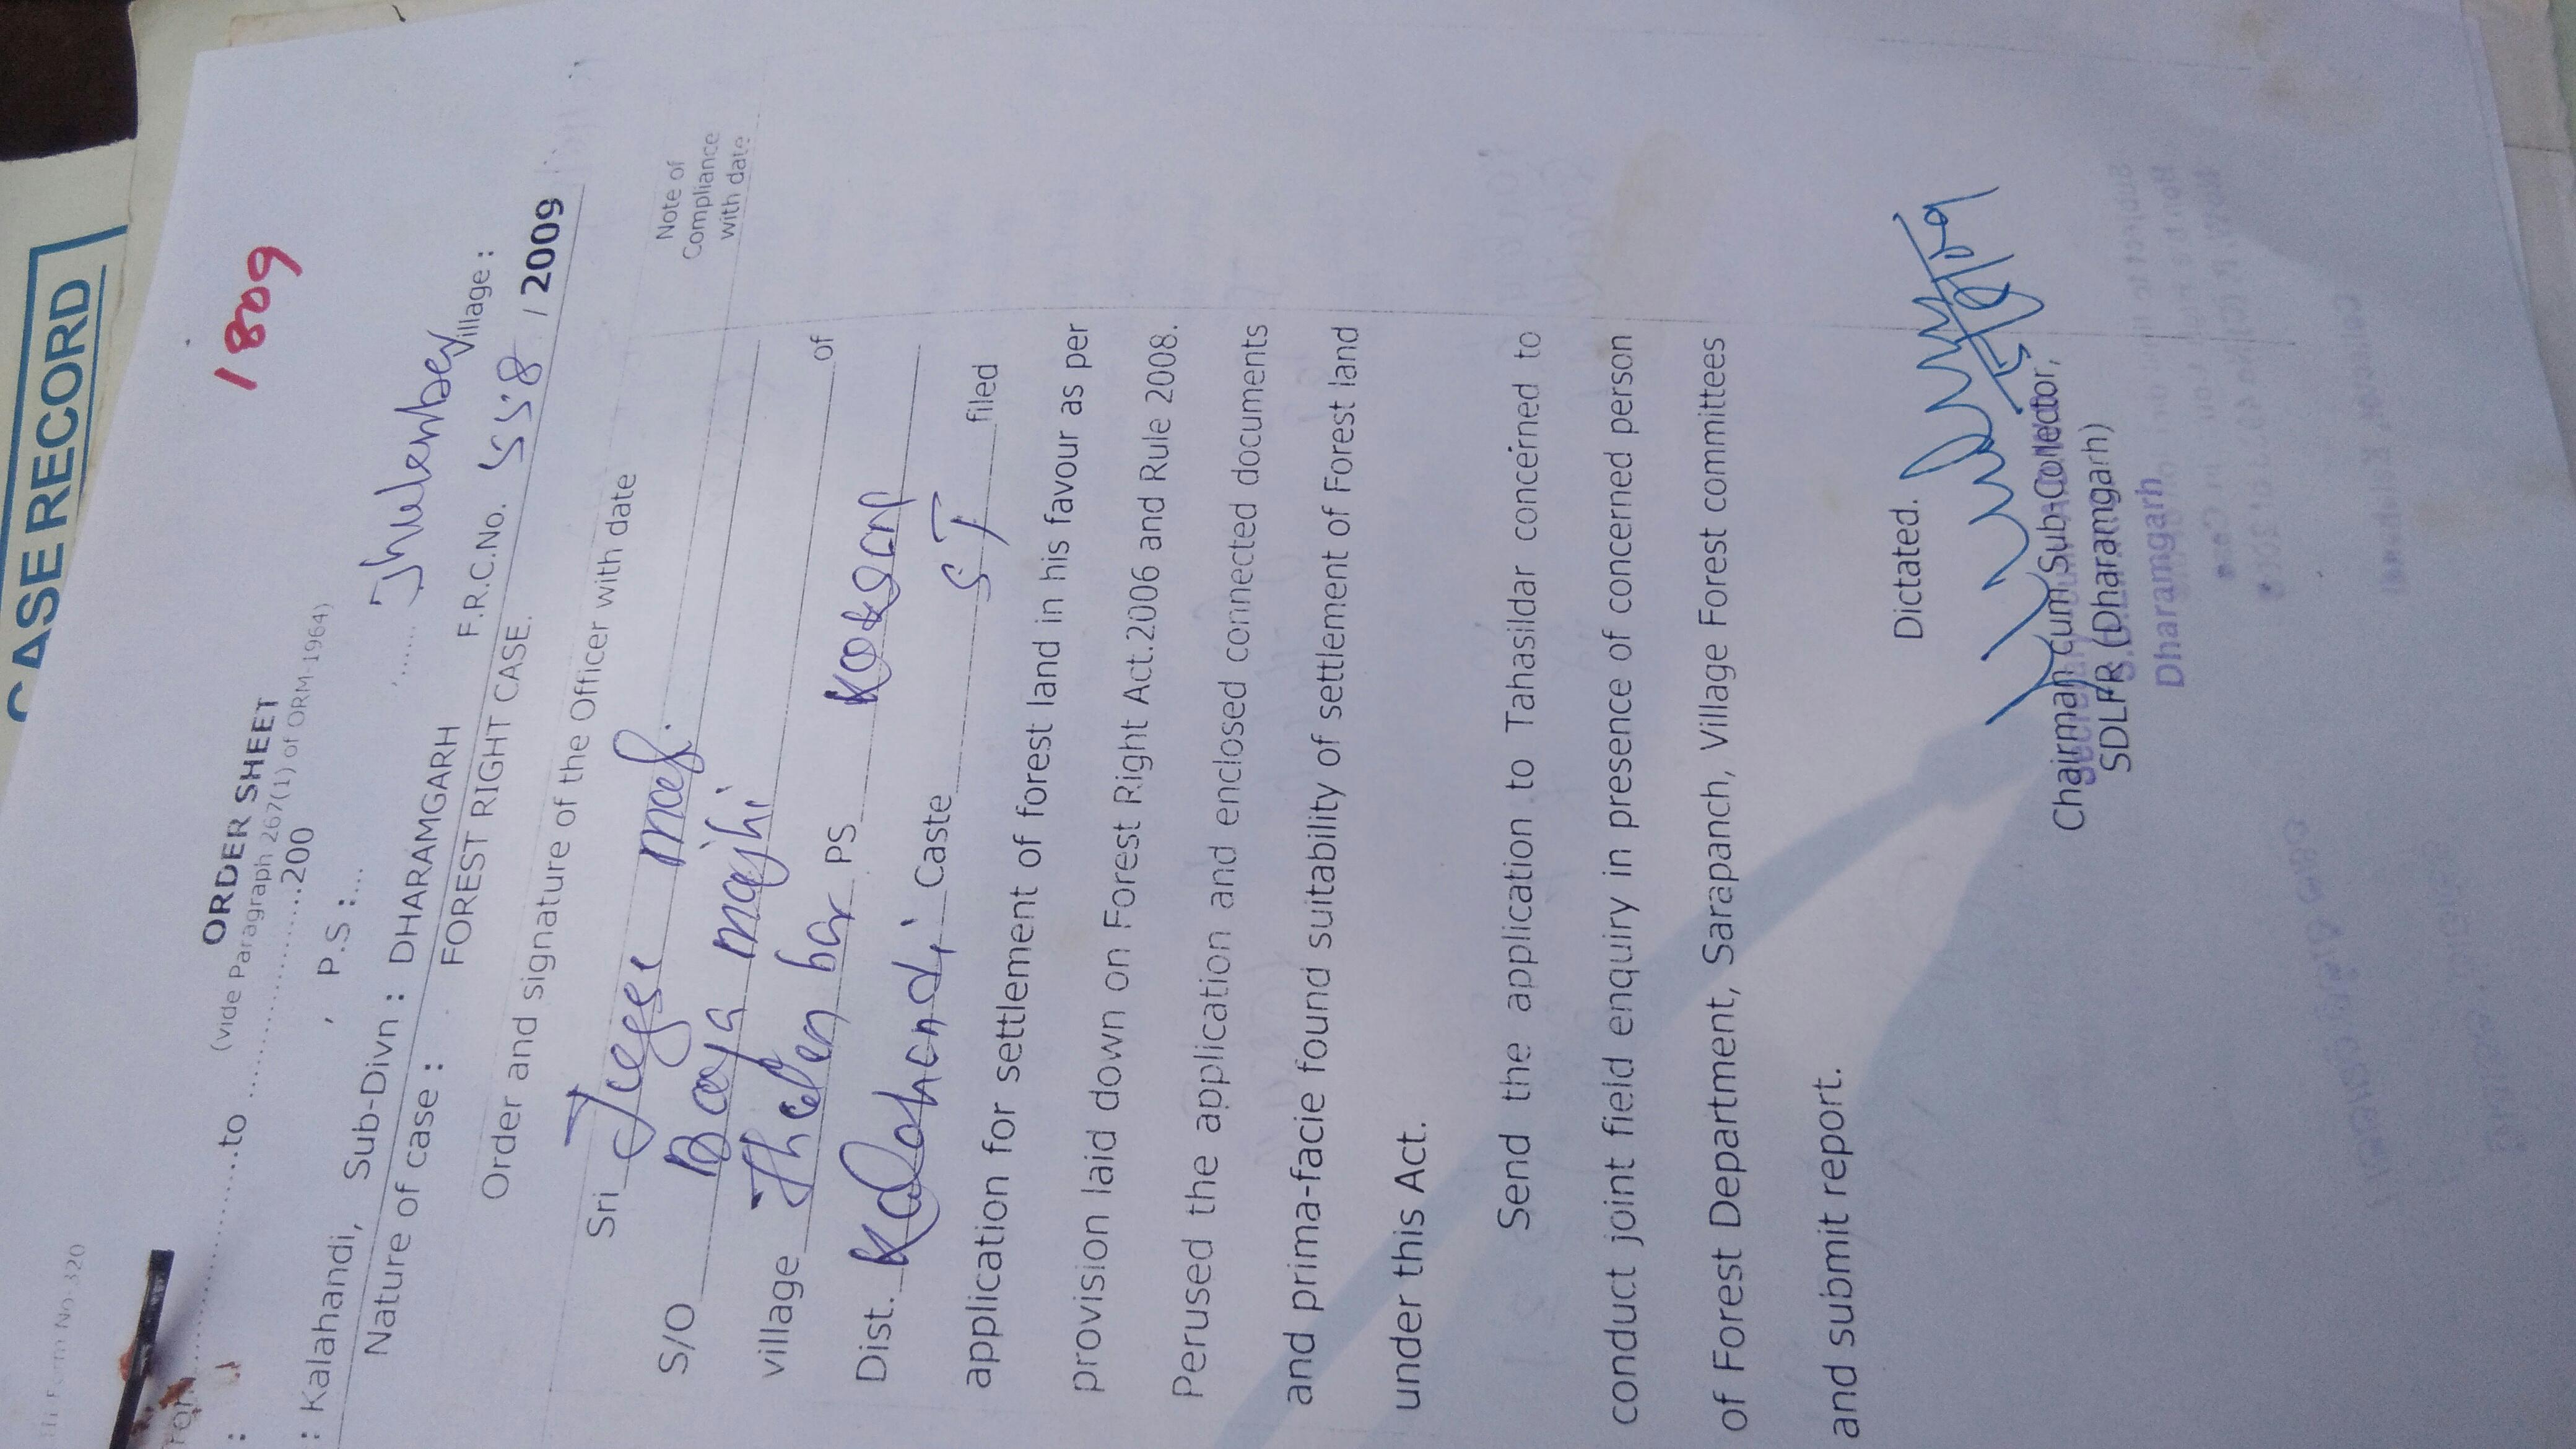 CASE RECORD
Form No.320
1809
ORDER SHEET
(vide Paragraph 267(1) of ORM-1964)
to ..................200
: Kalahandi, , P.S :... Jhulenber Village :
Sub-Divn : DHARAMGARH F.R.C.No. 558 / 2009
Nature of case : FOREST RIGHT CASE.
Order and signature of the Officer with date
Note of
Compliance
with date
Sri
S/O Baya majhi
village of
PS
Dist. Kalahandi Caste ST filed
application for settlement of forest land in his favour as per
provision laid down on Forest Right Act.2006 and Rule 2008.
Perused the application and enclosed connected documents
and prima-facie found suitability of settlement of Forest land
under this Act.
Send the application to Tahasildar concerned to
conduct joint field enquiry in presence of concerned person
of Forest Department, Sarapanch, Village Forest committees
and submit report.
Dictated.
Chairman cum Sub-Collector,
SDLFR (Dharamgarh)
Dharamgarh